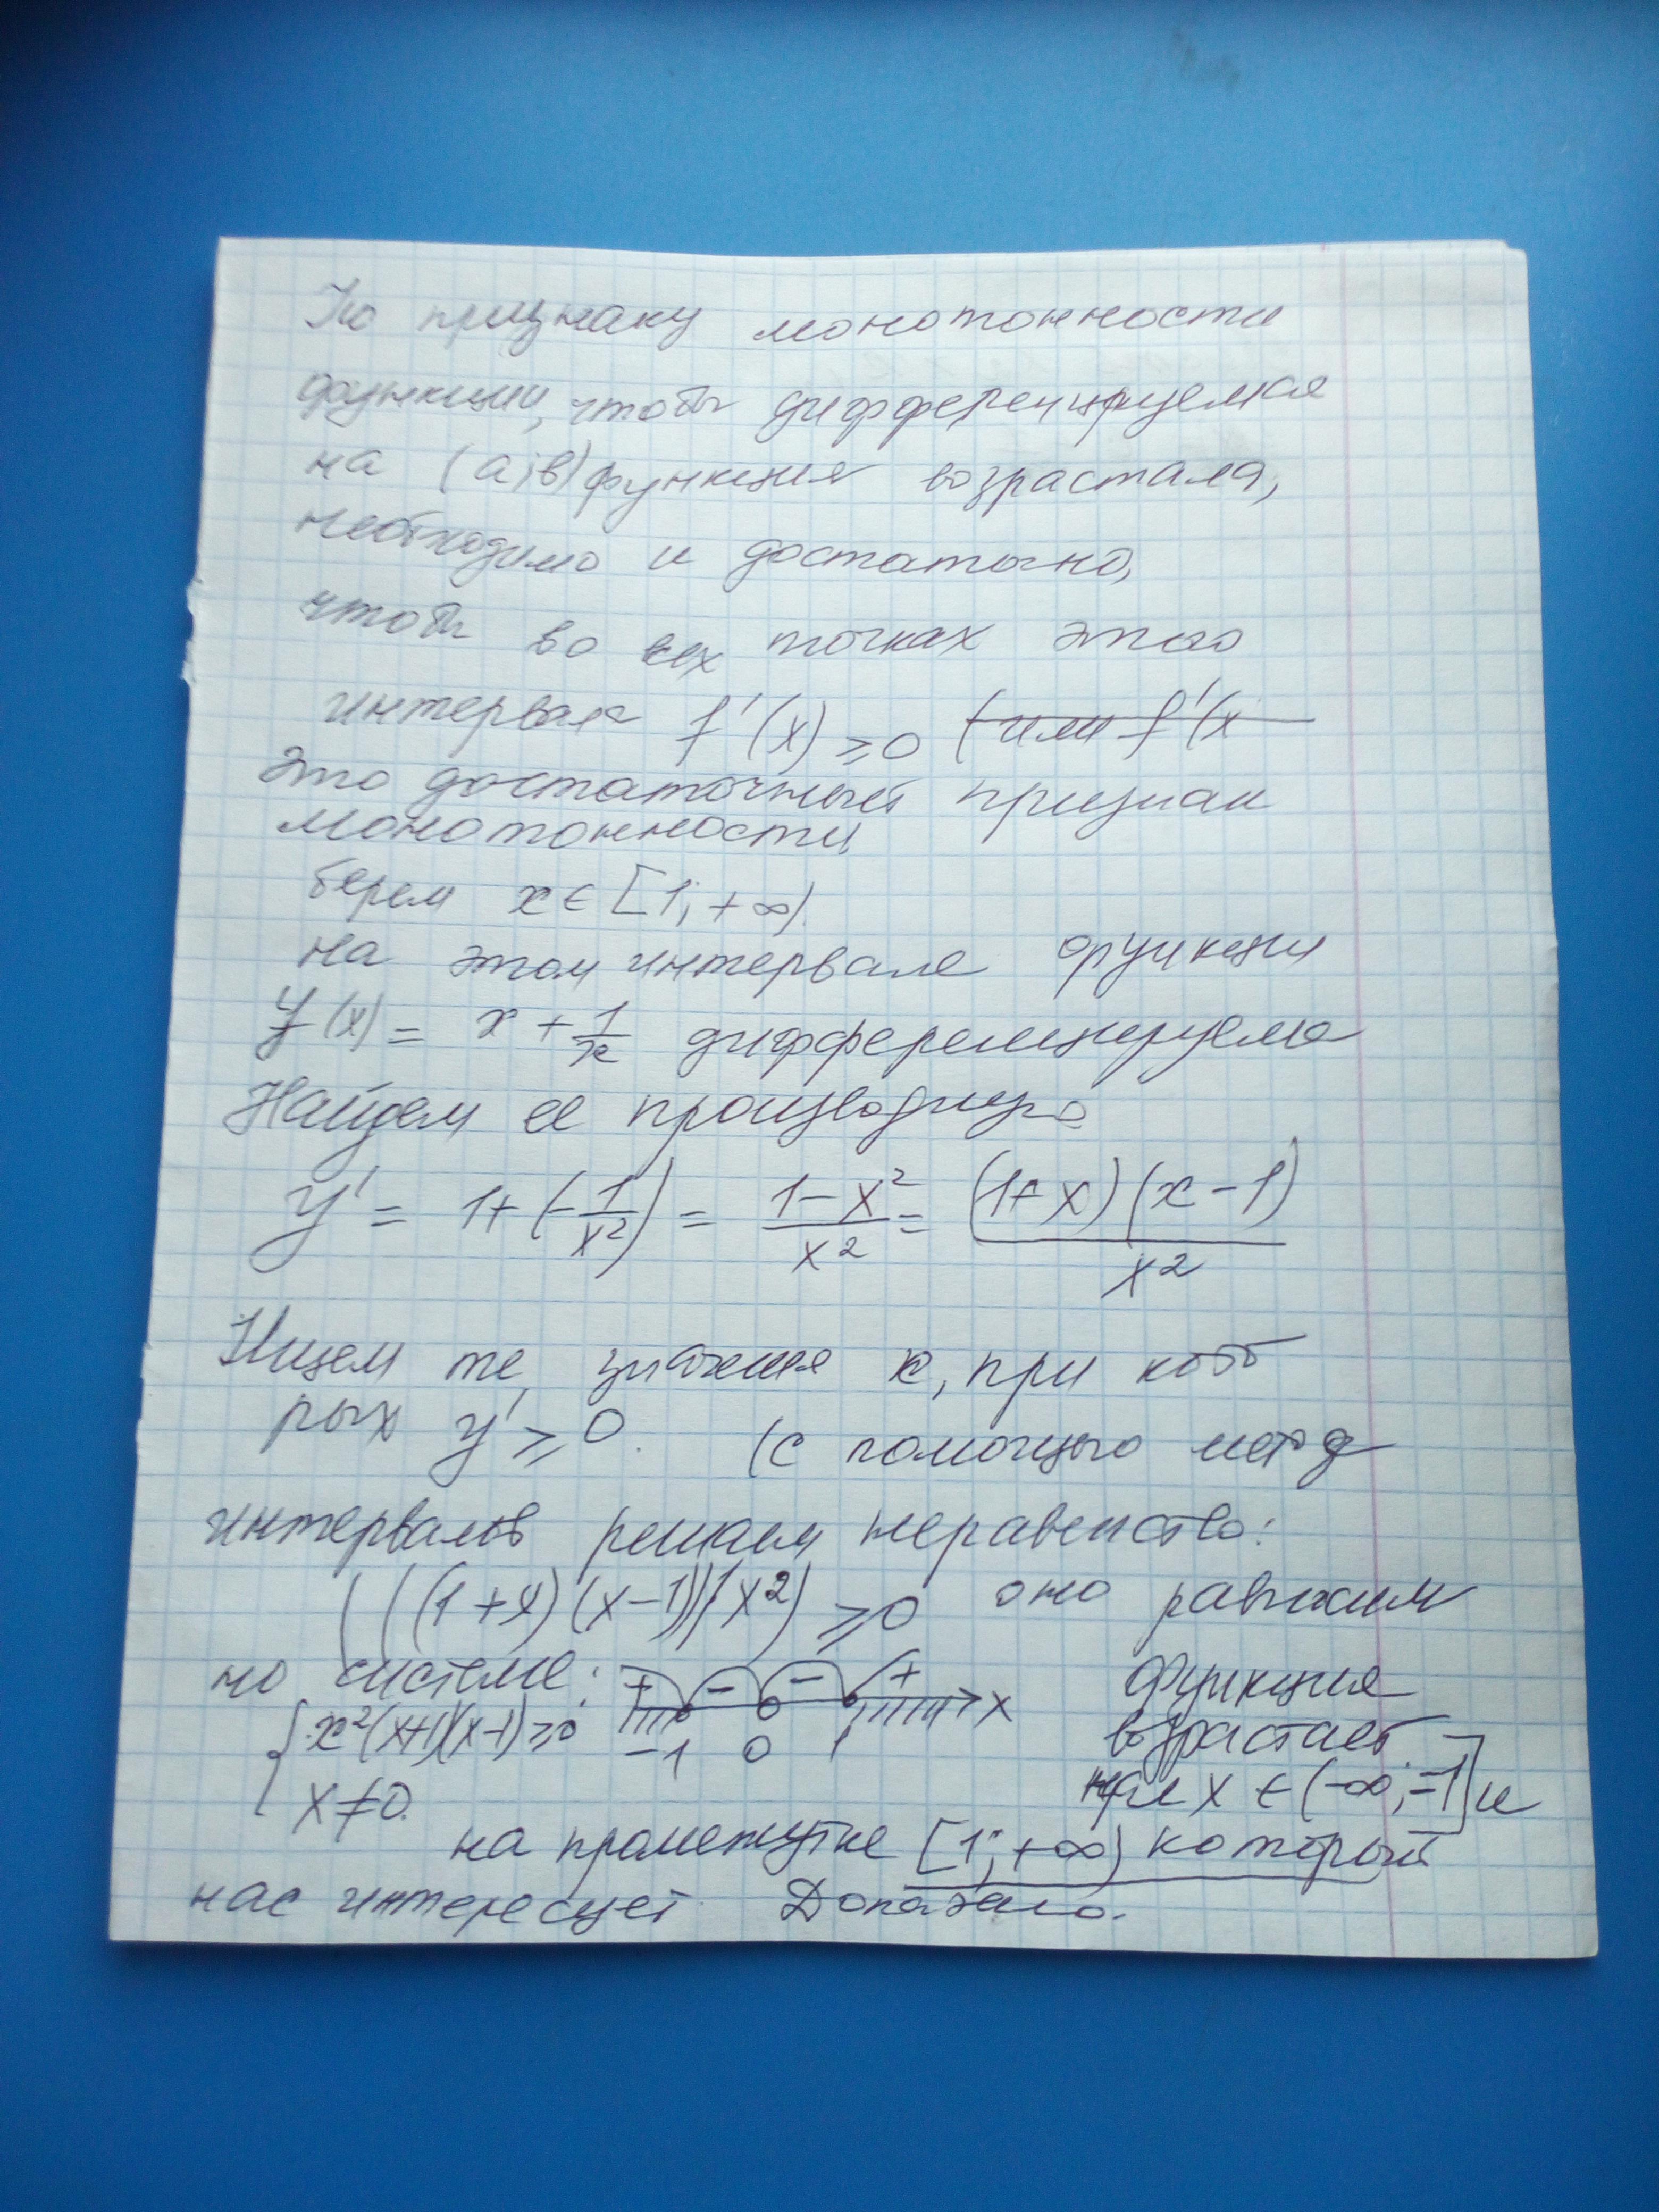 По признаку монотонности
функции, чтобы дифференцируемая
на (a;b) функция возрастала,
необходимо и достаточно,
чтобы во всех точках этого
интервала f'(x) ≥ 0 (или f'(x
Это достаточный признак
монотонности
берем x ∈ [1; +∞)
на этом интервале функция
y(x) = x + 1/x дифференцируема
Найдем ее производную
y' = 1 + (-1/x²) = (1-x²)/x² = ((1+x)(x-1))/x²
Ищем те значения x, при кото
рых y' ≥ 0. (с помощью метод
интервалов решаем неравенство:
(((1+x)(x-1))/x²) ≥ 0 оно равносиль
но системе: + - - + x функция
{ x²(x+1)(x-1) ≥ 0 -1 0 1 возрастает
x ≠ 0. при x ∈ (-∞; -1] и
на промежутке [1; +∞) который
нас интересует. Доказано.